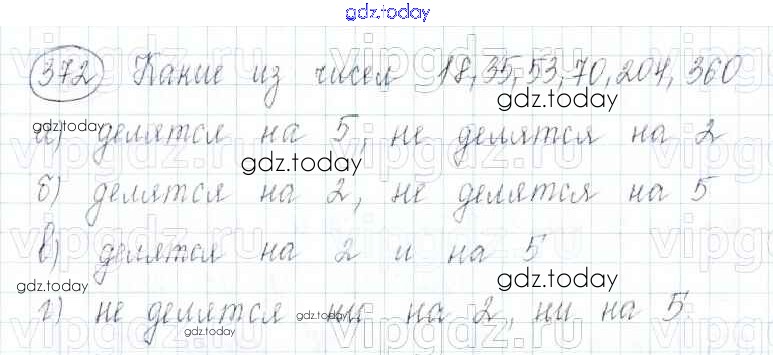 gdz.today
372 Какие из чисел 18, 35, 53, 70, 204, 360
gdz.today
а) делятся на 5, не делятся на 2
gdz.today
gdz.today
б) делятся на 2, не делятся на 5
в) делятся на 2 и на 5
gdz.today
gdz.today
г) не делятся ни на 2, ни на 5.
gdz.today
gdz.today